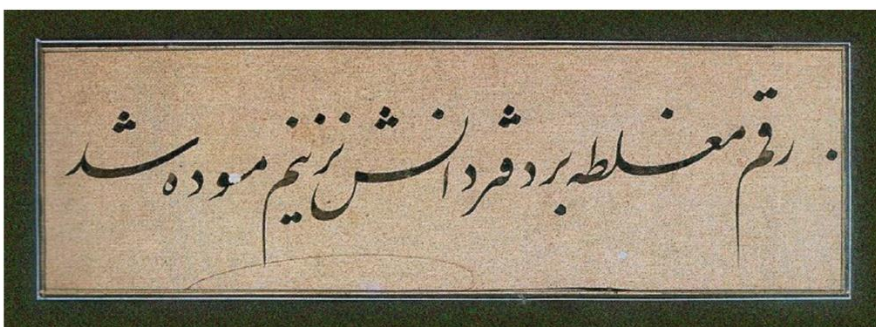 رقم مغلطه بر دفتر دانش نزنیم مسوده شد